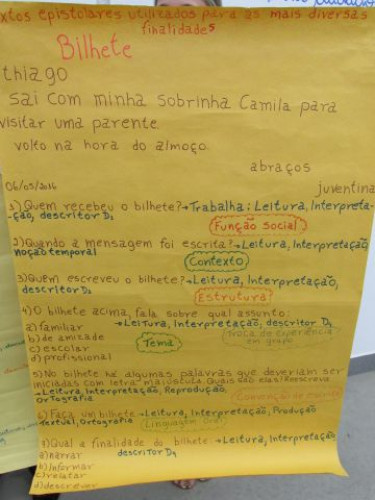 xtos epistolares utilizados para as mais diversas
finalidades
Bilhete
thiago
sai com minha sobrinha Camila para
visitar uma parente.
volto na hora do almoço.
abraços
06/05/2016 juventina
1) Quem recebeu o bilhete? → Trabalha: Leitura, Interpreta-
-ção, descritor D1
Função social
2) Quando a mensagem foi escrita? → Leitura, Interpretação
noção temporal
Contexto
3) Quem escreveu o bilhete? → Leitura, Interpretação,
descritor D2
Estrutura
4) O bilhete acima, fala sobre qual assunto:
a) familiar → Leitura, Interpretação, descritor D2
b) de amizade Troca de experiência
em grupo
c) escolar Tema
d) profissional
5) No bilhete há algumas palavras que deveriam ser
iniciadas com letra maiúscula. Quais são elas? Reescreva
→ Leitura, Interpretação, Reprodução,
Ortografia Convenção da escrita
6) Faça um bilhete → Leitura, Interpretação, Produção
textual, Ortografia Linguagem oral
7) Qual a finalidade do bilhete → Leitura, Interpretação,
a) narrar descritor D9
b) Informar
c) relatar
d) descrever